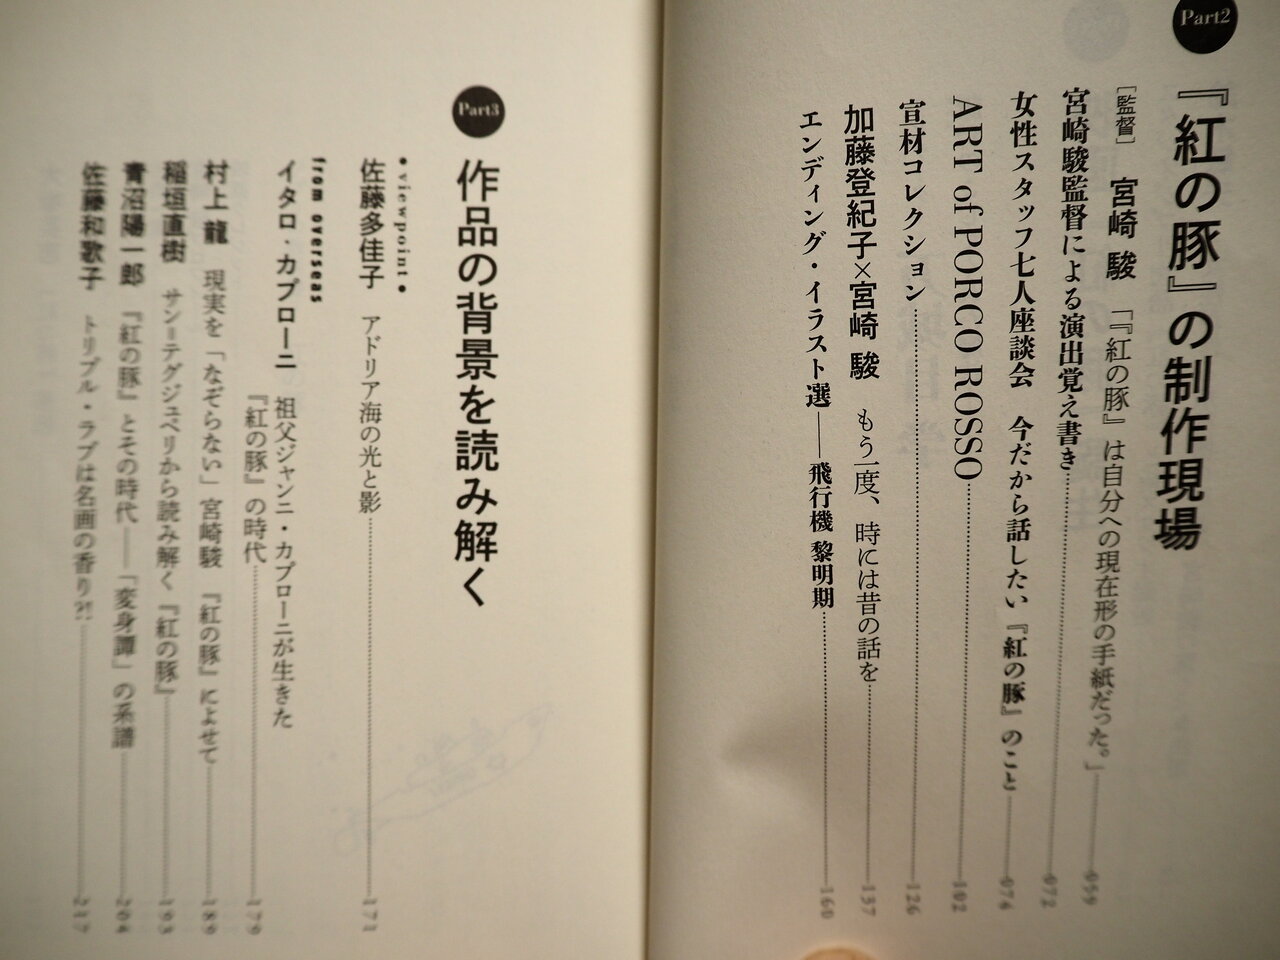 Part2
『紅の豚』の制作現場
[監督] 宮崎 駿 「『紅の豚』は自分への現在形の手紙だった。」 059
宮崎駿監督による演出覚え書き 072
女性スタッフ七人座談会 今だから話したい『紅の豚』のこと 074
ART of PORCO ROSSO 102
宣材コレクション 126
加藤登紀子×宮崎 駿 もう一度、時には昔の話を 137
エンディング・イラスト選——飛行機 黎明期 160
Part3
作品の背景を読み解く
●viewpoint●
佐藤多佳子 アドリア海の光と影 171
from overseas
イタロ・カプローニ 祖父ジャンニ・カプローニが生きた
『紅の豚』の時代 179
村上 龍 現実を「なぞらない」宮崎駿 『紅の豚』によせて 189
稲垣直樹 サン=テグジュペリから読み解く『紅の豚』 193
青沼陽一郎 『紅の豚』とその時代——「変身譚」の系譜 204
佐藤和歌子 トリプル・ラブは名画の香り?! 217